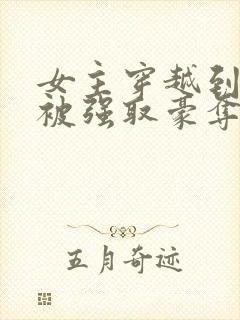 女主穿越到
被强取豪夺
五月奇迹